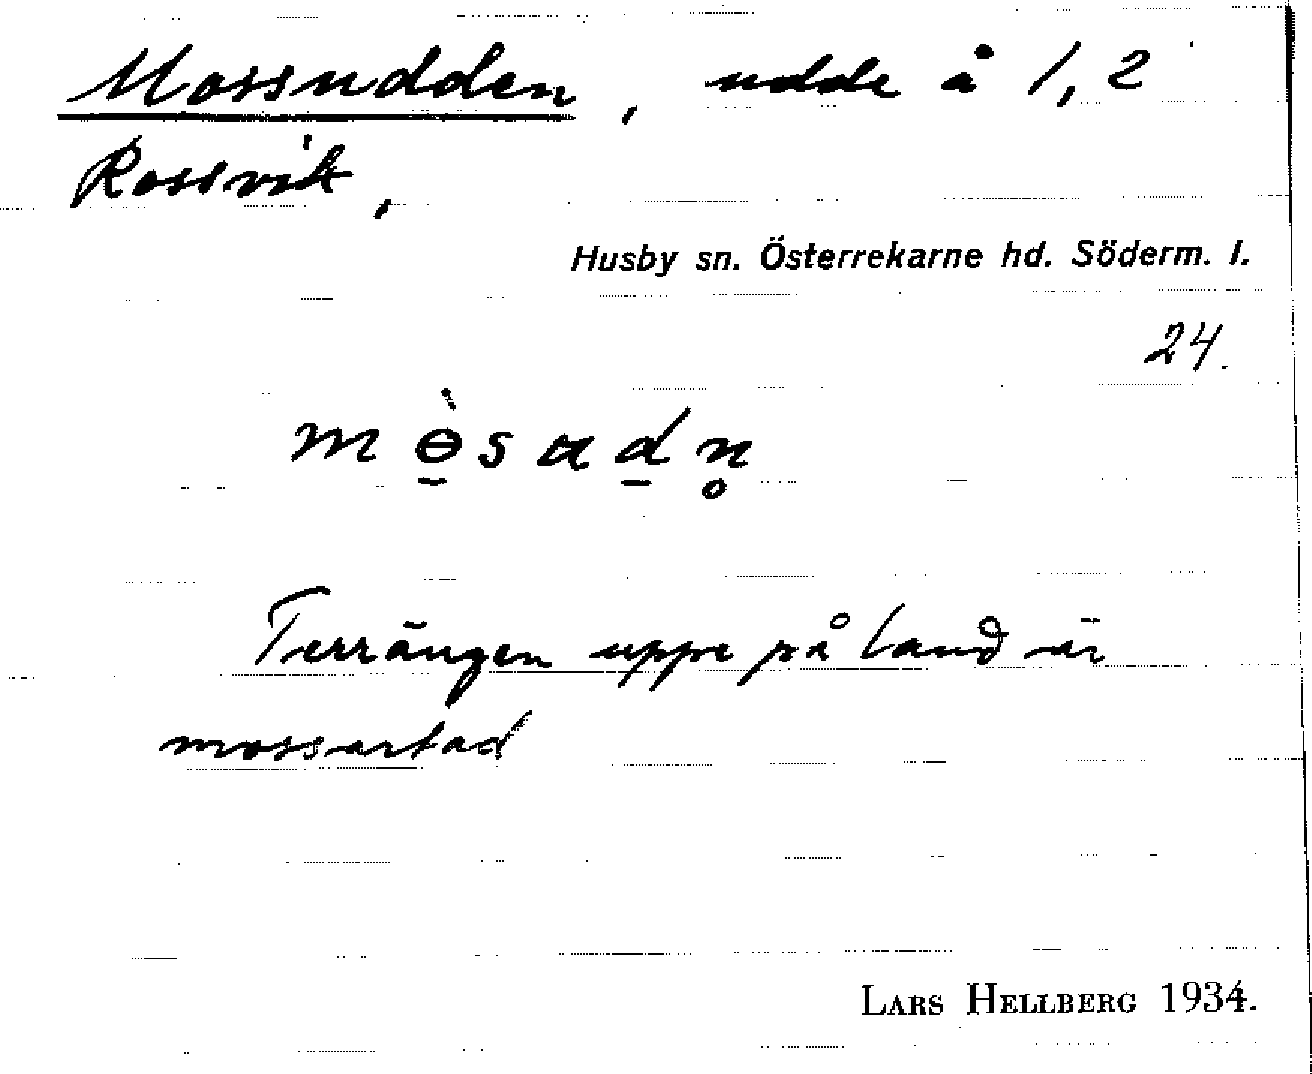 Mossudden, udde å 1,2
Rossvik,
Husby sn. Österrekarne hd. Söderm. l.
24.
mɵ̱̀sad̠n̥
Terrängen uppe på land är
mossartad
LARS HELLBERG 1934.